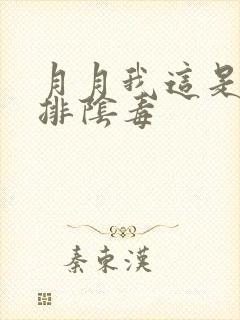 月月我這是
排陰毒
秦東漢